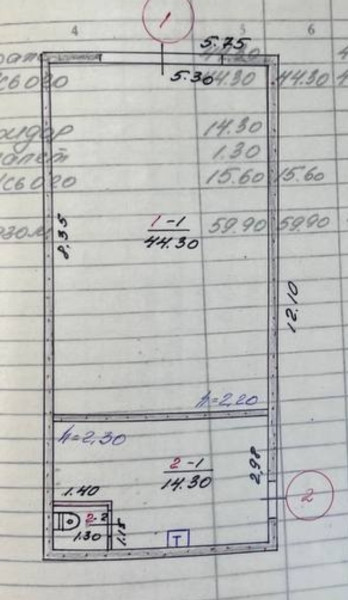 1
4 5 6
5.75
5.30
44.30 44.30
14.30
1.30
15.60 15.60
1-1
44.30
59.90 59.90
8,35
12.10
h=2,20
h=2,30
2-1
14.30
2,98
1.40
2
2-2
1.30
1.15
T